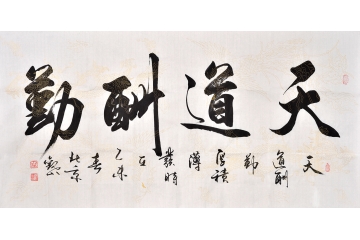 天道酬勤
天
道酬
勤
厚積
薄
發時
在
乙未
春
北京